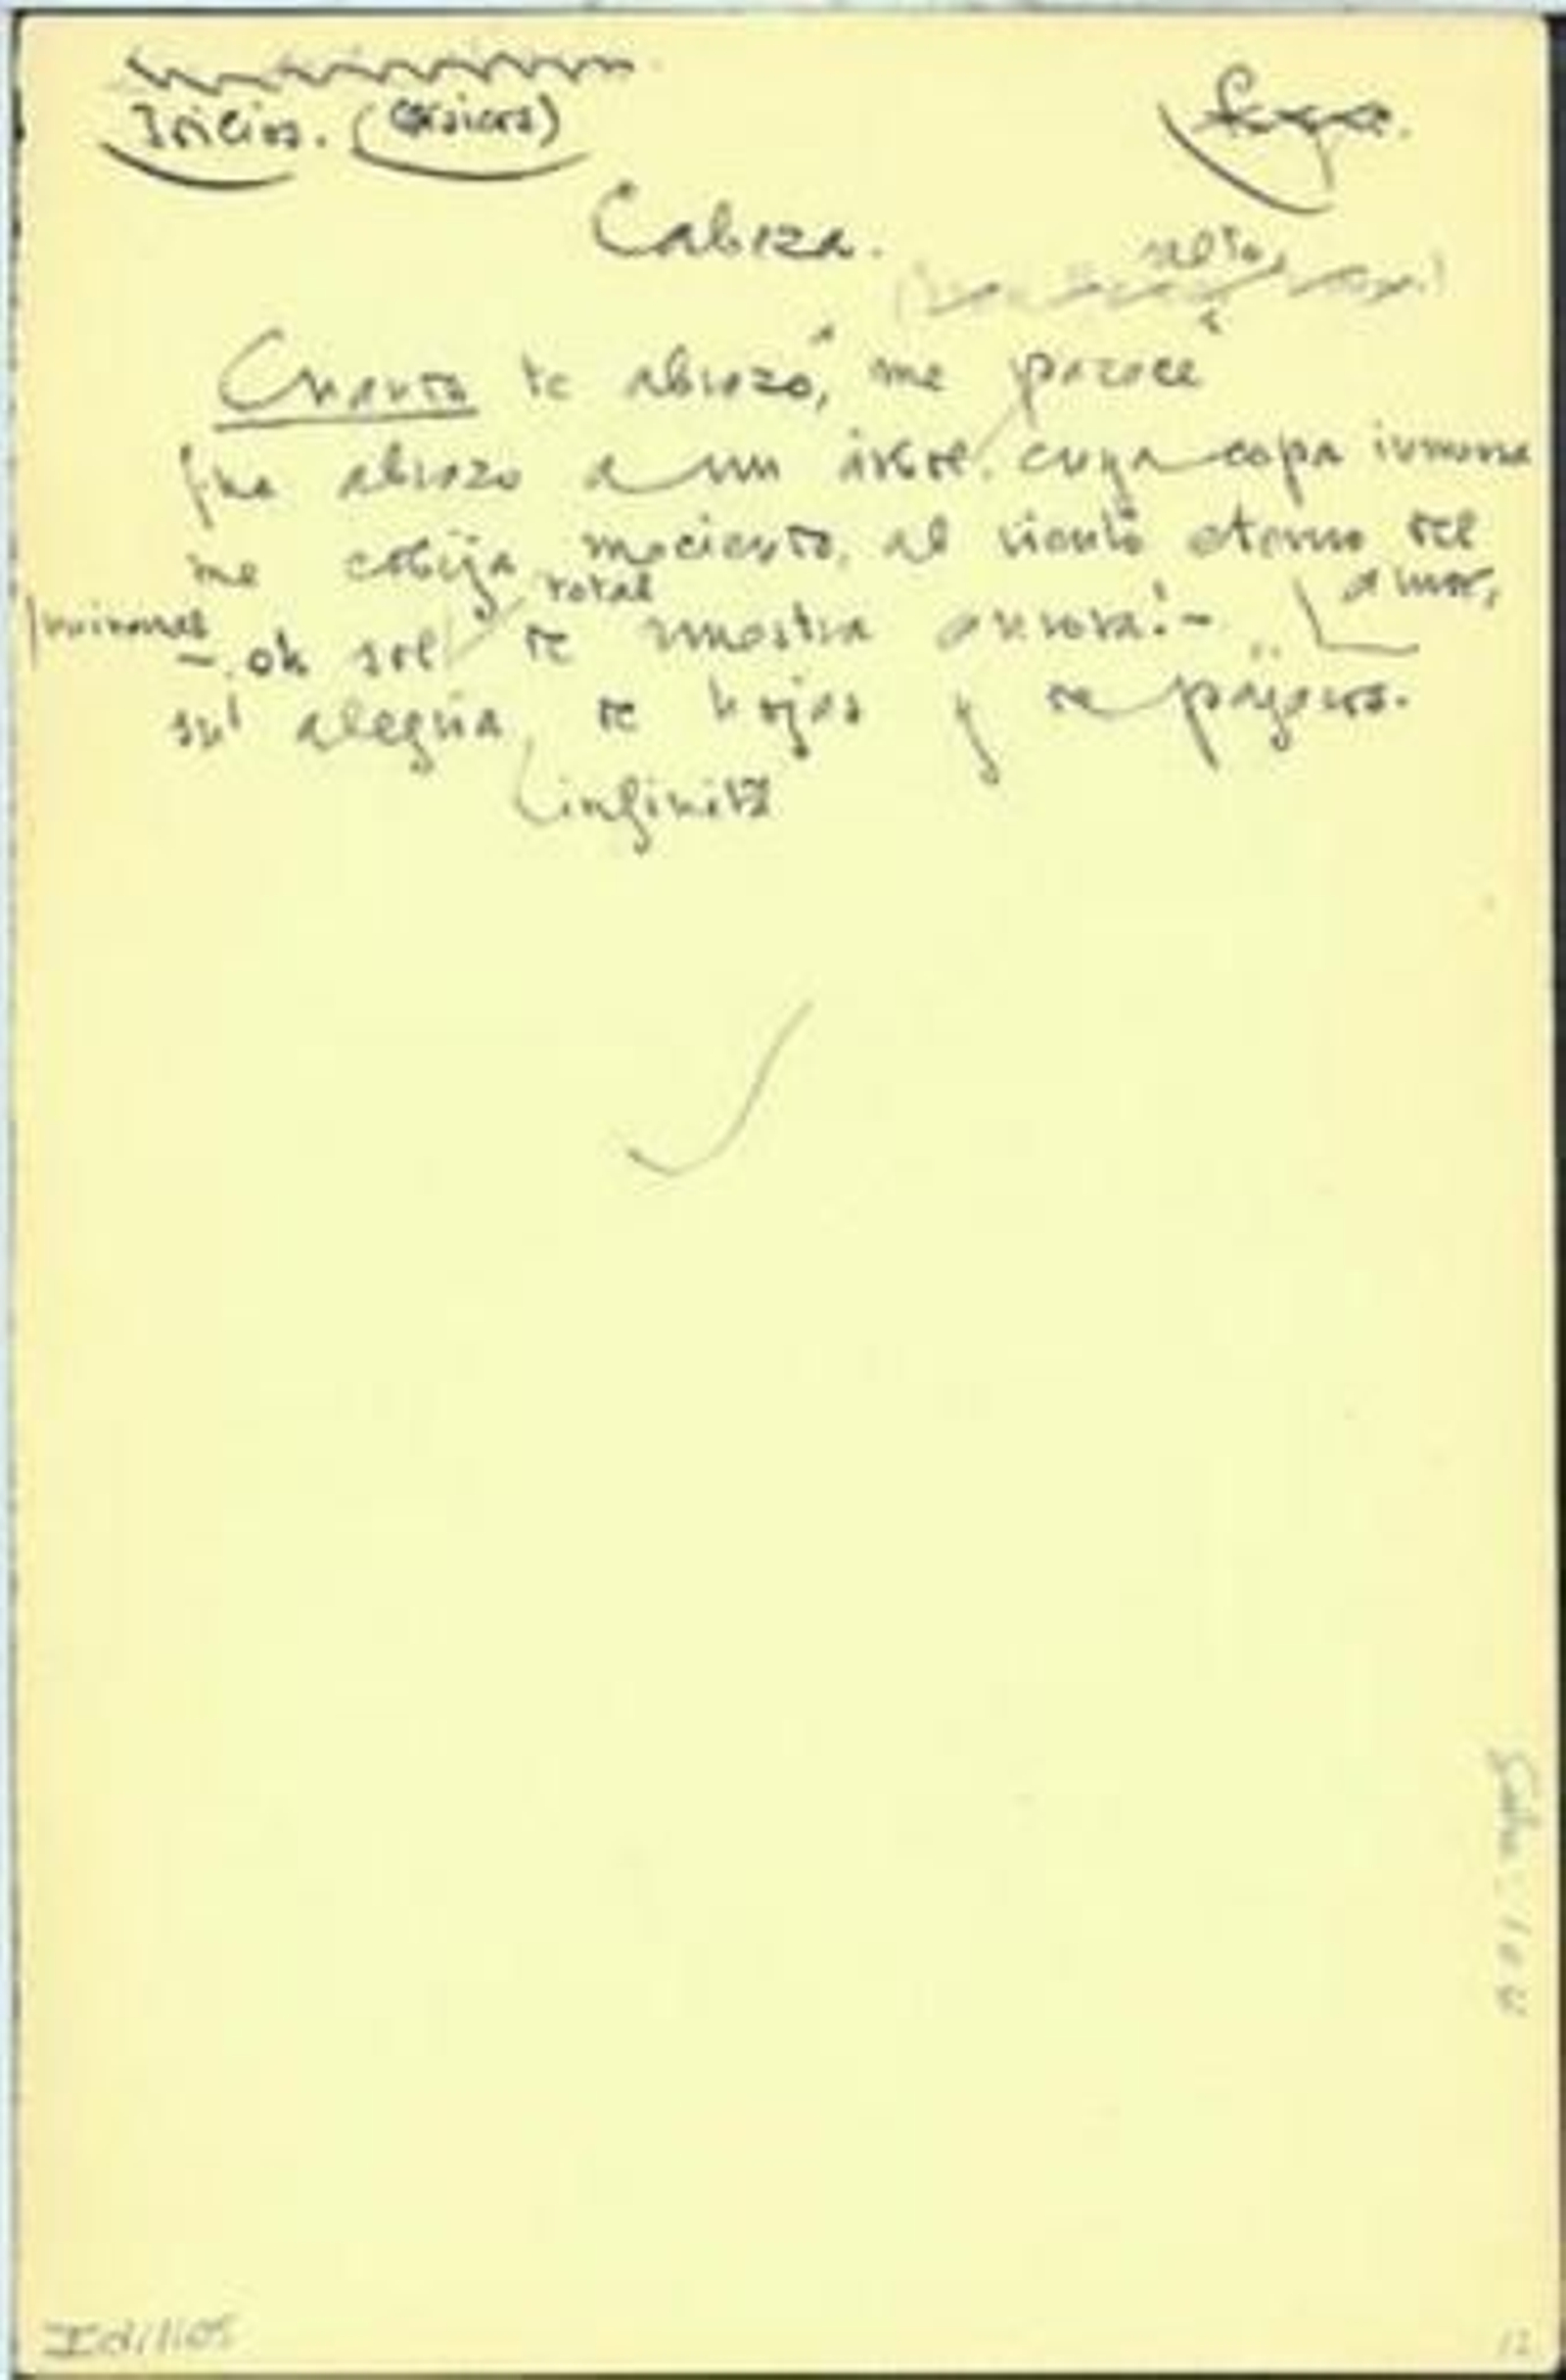 Idilios. (Clásicos)
Cabeza.
alto,
Cuando te abrazo, me parece
que abrazo a un árbol cuya copa inmensa
me cobija meciendo, al viento eterno del
amor,
total
– oh sol de nuestra aurora! –
su alegría de hojas y de pájaros.
infinita
Idilios
12